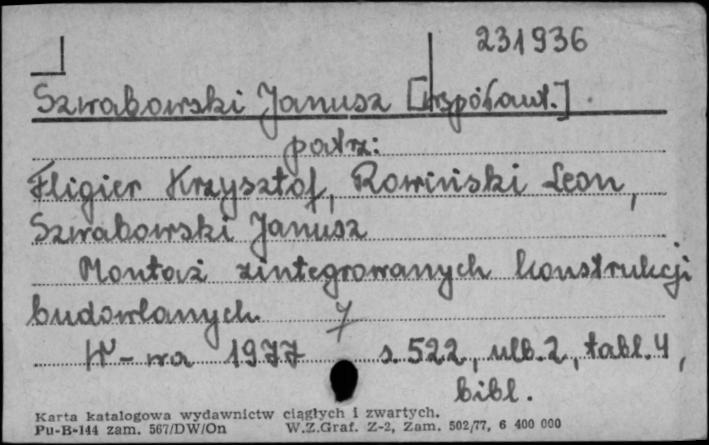 231936
Szwabowski Janusz [współaut.].
patrz:
Fligier Krzysztof, Rowiński Leon,
Szwabowski Janusz
Montaż zintegrowanych konstrukcji
budowlanych 7
W-wa 1977 s. 522, ulb. 2, tabl. 4,
bibl.
Karta katalogowa wydawnictw ciągłych i zwartych.
Pu-B-144 zam. 567/DW/On W.Z.Graf. Z-2, Zam. 502/77, 6 400 000